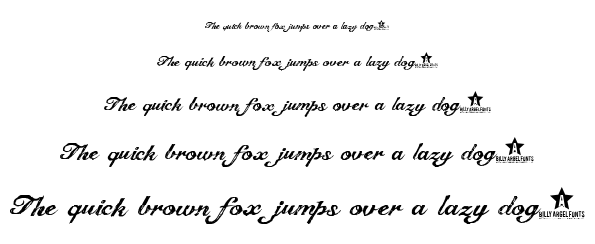 The quick brown fox jumps over a lazy dog
The quick brown fox jumps over a lazy dog
The quick brown fox jumps over a lazy dog
The quick brown fox jumps over a lazy dog BILLY ARGEL FONTS
The quick brown fox jumps over a lazy dog BILLY ARGEL FONTS